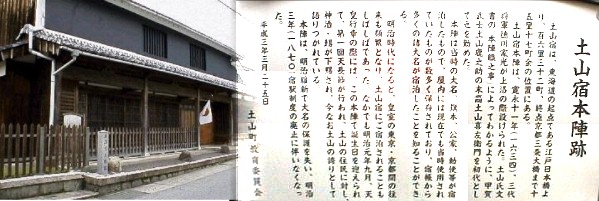 土山宿本陣跡
土山宿は、東海道の起点である江戸日本橋よ
り、百六里三十二町、終点京都三条大橋まで十
五里十七町余の位置にある。
土山宿本陣は、寛永十一年(一六三四)、三代
将軍徳川家光が上洛の際設けられた。土山氏文
書の「本陣職之事」によってわかるように、甲賀
武士土山鹿之助の末裔土山喜左衛門を初代とし
てこれを勤めた。
本陣は当時の大名、旗本、公家、勅使等が宿
泊したもので、屋内には現在でも当時使用され
ていたものが数多く保存されており、宿帳から
多くの諸大名が宿泊したことを知ることができ
る。
明治時代になると、皇室の東京・京都間の往
来も頻繁となり、土山宿にご宿泊されることも
しばしばであった。なかでも明治元年九月、天
皇行幸の際には、この本陣で誕生日を迎えられ
て、第一回天長節が行われ、土山の住民に対し、
神酒・鯣が下賜され、今なお土山の誇りとして
語りつがれている。
本陣は、明治維新で大名の保護を失い、明治
三年(一八七〇)、宿駅制度の廃止に伴いなくなっ
た。
平成三年三月二十五日
土山町教育委員会